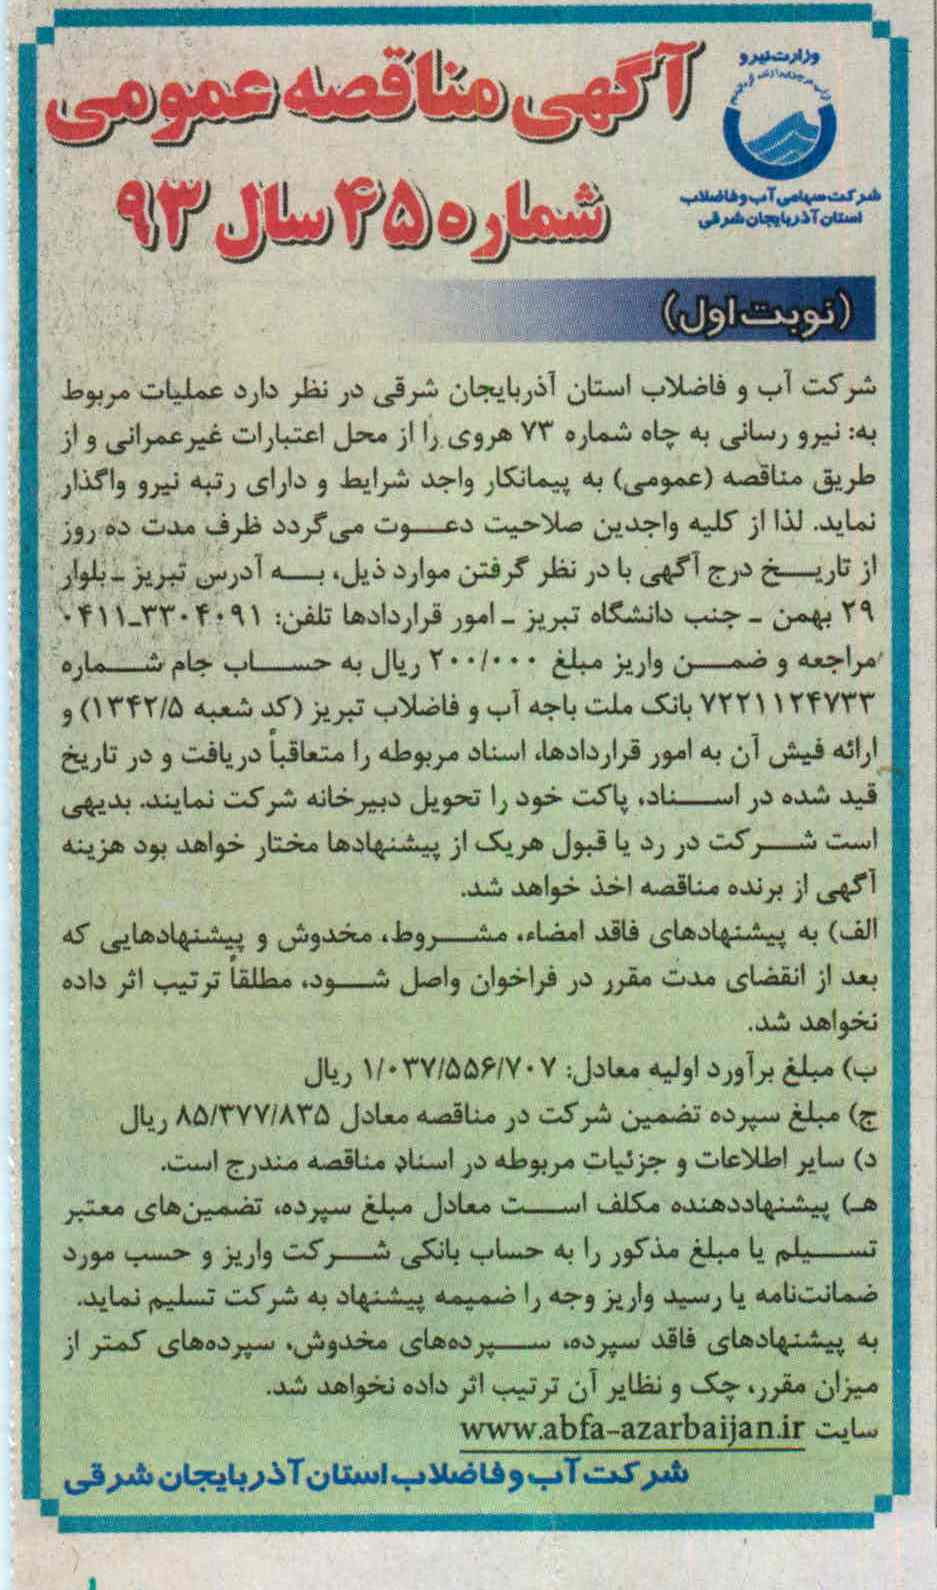 وزارت نیرو
شرکت سهامی آب و فاضلاب
استان آذربایجان شرقی
آگهی مناقصه عمومی
شماره ۴۵ سال ۹۳
(نوبت اول)
شرکت آب و فاضلاب استان آذربایجان شرقی در نظر دارد عملیات مربوط
به: نیرو رسانی به چاه شماره ۷۳ هروی را از محل اعتبارات غیرعمرانی و از
طریق مناقصه (عمومی) به پیمانکار واجد شرایط و دارای رتبه نیرو واگذار
نماید. لذا از کلیه واجدین صلاحیت دعوت می‌گردد ظرف مدت ده روز
از تاریخ درج آگهی با در نظر گرفتن موارد ذیل، به آدرس تبریز ـ بلوار
۲۹ بهمن ـ جنب دانشگاه تبریز ـ امور قراردادها تلفن: ۳۳۰۴۰۹۱-۰۴۱۱
مراجعه و ضمن واریز مبلغ ۲۰۰/۰۰۰ ریال به حساب جام شماره
۷۲۲۱۱۲۴۷۳۳ بانک ملت باجه آب و فاضلاب تبریز (کد شعبه ۱۳۴۲/۵) و
ارائه فیش آن به امور قراردادها، اسناد مربوطه را متعاقباً دریافت و در تاریخ
قید شده در اسناد، پاکت خود را تحویل دبیرخانه شرکت نمایند. بدیهی
است شرکت در رد یا قبول هریک از پیشنهادها مختار خواهد بود هزینه
آگهی از برنده مناقصه اخذ خواهد شد.
الف) به پیشنهادهای فاقد امضاء، مشروط، مخدوش و پیشنهادهایی که
بعد از انقضای مدت مقرر در فراخوان واصل شود، مطلقاً ترتیب اثر داده
نخواهد شد.
ب) مبلغ برآورد اولیه معادل: ۱/۰۳۷/۵۵۶/۷۰۷ ریال
ج) مبلغ سپرده تضمین شرکت در مناقصه معادل ۸۵/۳۷۷/۸۳۵ ریال
د) سایر اطلاعات و جزئیات مربوطه در اسناد مناقصه مندرج است.
هـ) پیشنهاددهنده مکلف است معادل مبلغ سپرده، تضمین‌های معتبر
تسیلم یا مبلغ مذکور را به حساب بانکی شرکت واریز و حسب مورد
ضمانت‌نامه یا رسید واریز وجه را ضمیمه پیشنهاد به شرکت تسلیم نماید.
به پیشنهادهای فاقد سپرده، سپرده‌های مخدوش، سپرده‌های کمتر از
میزان مقرر، چک و نظایر آن ترتیب اثر داده نخواهد شد.
سایت www.abfa-azarbaijan.ir
شرکت آب و فاضلاب استان آذربایجان شرقی